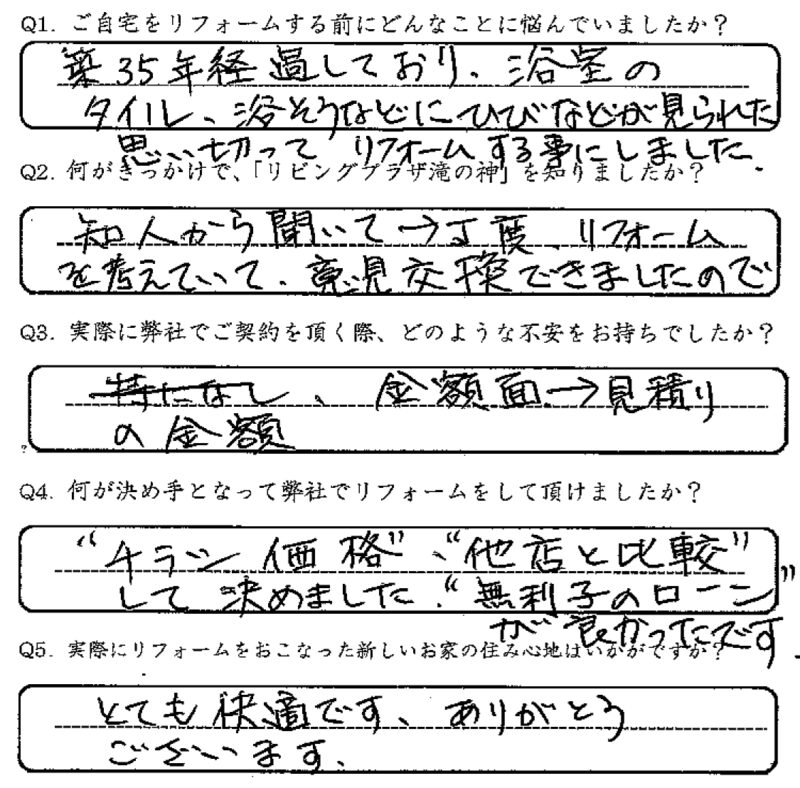 Q1. ご自宅をリフォームする前にどんなことに悩んでいましたか？
築35年経過しており、浴室の
タイル、浴そうなどにひびなどが見られた
思い切って リフォームする事にしました.
Q2. 何がきっかけで、「リビングプラザ滝の神」を知りましたか？
知人から聞いて→丁度、リフォーム
を考えていて、意見交換できましたので
Q3. 実際に弊社でご契約を頂く際、どのような不安をお持ちでしたか？
特になし、金額面.→見積り
の金額
Q4. 何が決め手となって弊社でリフォームをして頂けましたか？
“チラシ 価格”、“他店と比較”
して 決めました.“無利子のローン”
が良かったです.
Q5. 実際にリフォームをおこなった新しいお家の住み心地はいかがですか？
とても快適です、ありがとう
ございます.